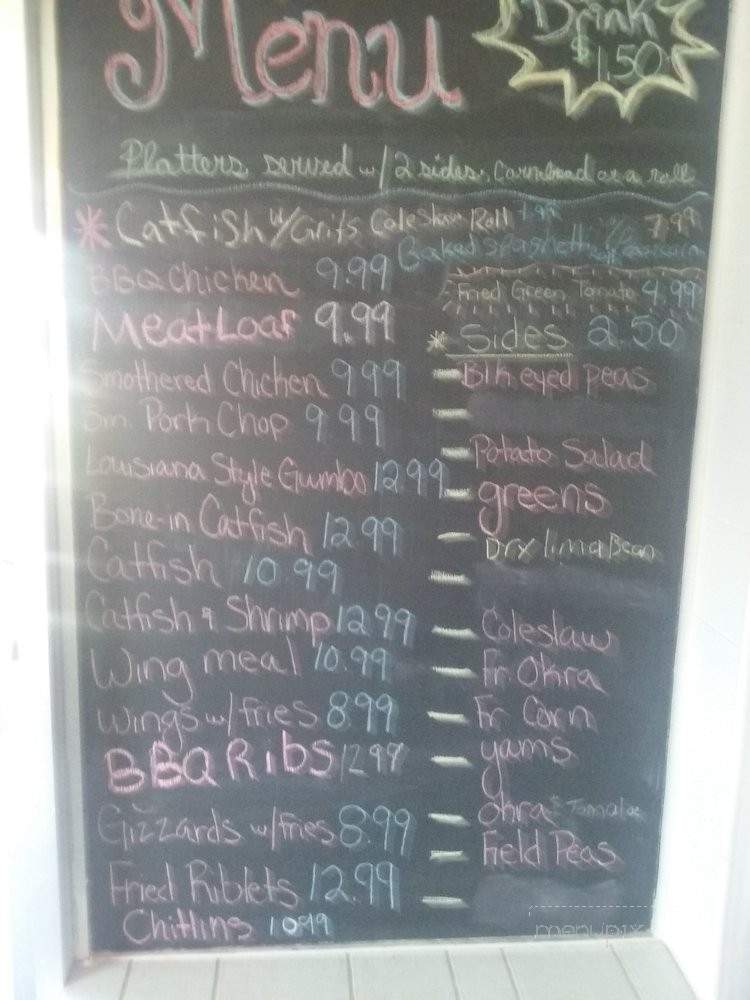 Menu
Drink
$1.50
Platters served w/ 2 sides, Cornbread or a roll
* Catfish w/Grits Coleslaw Roll 7.99
Baked Spaghetti
BBQ Chicken 9.99
Fried Green Tomato 4.99
MeatLoaf 9.99
Smothered Chicken 9.99
Sm. Pork Chop 9.99
Louisiana Style Gumbo 12.99
Bone-in Catfish 12.99
Catfish 10.99
Catfish & Shrimp 12.99
Wing meal 10.99
Wings w/fries 8.99
BBQ Ribs 12.99
Gizzards w/fries 8.99
Fried Riblets 12.99
Chitlins 10.99
* Sides 2.50
- Blk eyed peas
-
- Potato Salad
- greens
- Dry lima Bean
-
- Coleslaw
- Fr Okra
- Fr Corn
- yams
- Okra & Tomatoe
- Field Peas
-
menupix